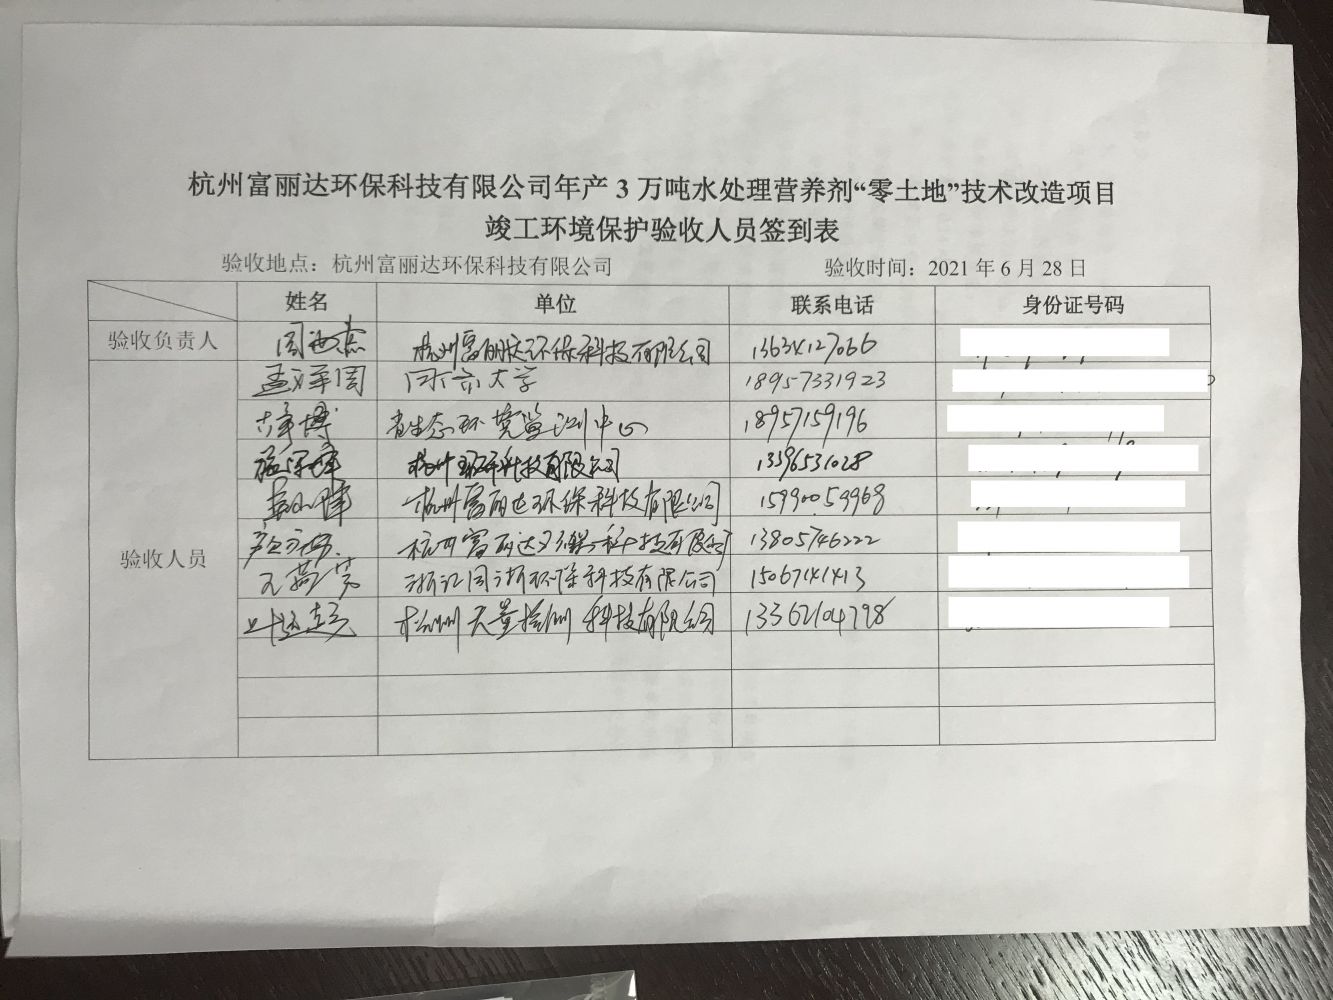 杭州富丽达环保科技有限公司年产 3 万吨水处理营养剂“零土地”技术改造项目
竣工环境保护验收人员签到表
验收地点：杭州富丽达环保科技有限公司 验收时间：2021 年 6 月 28 日
姓名 单位 联系电话 身份证号码
验收负责人 杭州富丽达环保科技有限公司 13634127066
同济大学 18957331923
省生态环境监测中心 18957159196
科技有限公司 13396531028
杭州富丽达环保科技有限公司 15990059968
验收人员 杭州富丽达环保科技有限公司 13805746222
浙江同浙环保科技有限公司 15067141413
杭州天量检测科技有限公司 13362104798